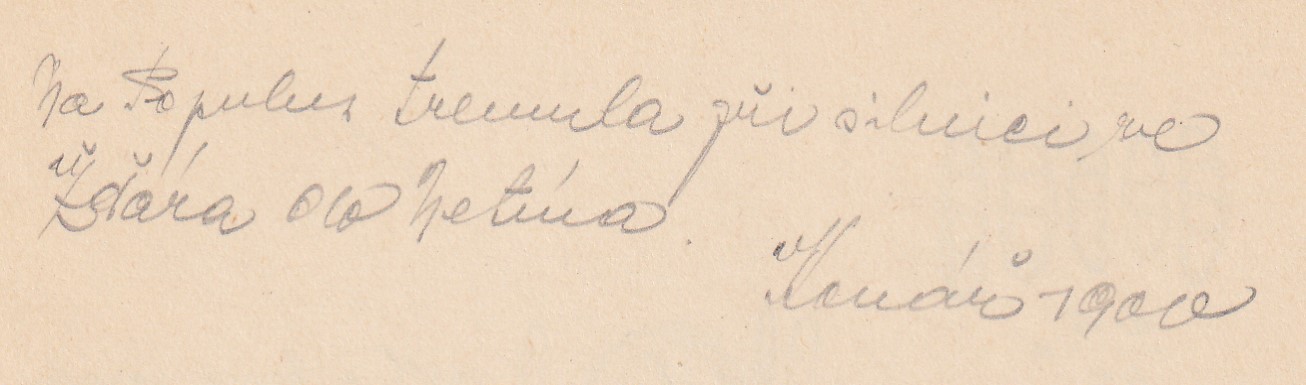 Na Populus tremula při silnici ze
Žďára do Netína.
Kovář 1900